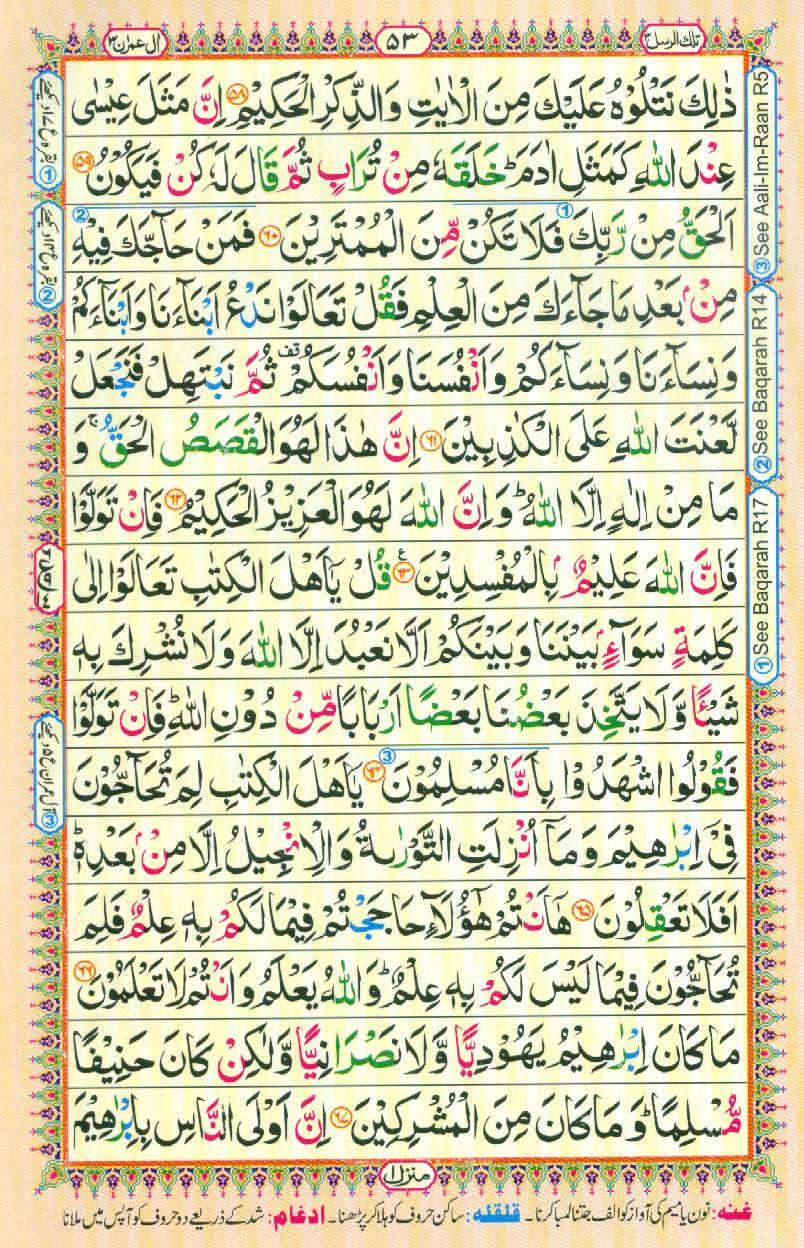 تلك الرسل ٣
٥٣
ال عمرٰن ٣
ذٰلِكَ نَتْلُوْهُ عَلَيْكَ مِنَ الْاٰيٰتِ وَالذِّكْرِ الْحَكِيْمِ ﴿۵۸﴾ اِنَّ مَثَلَ عِيْسٰى
عِنْدَ اللّٰهِ كَمَثَلِ اٰدَمَ ؕ خَلَقَهٗ مِنْ تُرَابٍ ثُمَّ قَالَ لَهٗ كُنْ فَيَكُوْنُ ﴿۵۹﴾
اَلْحَقُّ مِنْ رَّبِّكَ فَلَا تَكُنْ مِّنَ الْمُمْتَرِيْنَ ﴿۶۰﴾ فَمَنْ حَآجَّكَ فِيْهِ
مِنْۢ بَعْدِ مَا جَآءَكَ مِنَ الْعِلْمِ فَقُلْ تَعَالَوْا نَدْعُ اَبْنَآءَنَا وَاَبْنَآءَكُمْ
وَنِسَآءَنَا وَنِسَآءَكُمْ وَاَنْفُسَنَا وَاَنْفُسَكُمْ ࣞ ثُمَّ نَبْتَهِلْ فَنَجْعَلْ
لَّعْنَتَ اللّٰهِ عَلَى الْكٰذِبِيْنَ ﴿۶۱﴾ اِنَّ هٰذَا لَهُوَ الْقَصَصُ الْحَقُّ ۚ وَ
مَا مِنْ اِلٰهٍ اِلَّا اللّٰهُ ؕ وَاِنَّ اللّٰهَ لَهُوَ الْعَزِيْزُ الْحَكِيْمُ ﴿۶۲﴾ فَاِنْ تَوَلَّوْا
فَاِنَّ اللّٰهَ عَلِيْمٌۢ بِالْمُفْسِدِيْنَ ﴿۶۳﴾ قُلْ يٰۤاَهْلَ الْكِتٰبِ تَعَالَوْا اِلٰى
كَلِمَةٍ سَوَآءٍۭ بَيْنَنَا وَبَيْنَكُمْ اَلَّا نَعْبُدَ اِلَّا اللّٰهَ وَلَا نُشْرِكَ بِهٖ
شَيْـًٔا وَّلَا يَتَّخِذَ بَعْضُنَا بَعْضًا اَرْبَابًا مِّنْ دُوْنِ اللّٰهِ ؕ فَاِنْ تَوَلَّوْا
فَقُوْلُوا اشْهَدُوْا بِاَنَّا مُسْلِمُوْنَ ﴿۶۴﴾ يٰۤاَهْلَ الْكِتٰبِ لِمَ تُحَآجُّوْنَ
فِىْۤ اِبْرٰهِيْمَ وَمَاۤ اُنْزِلَتِ التَّوْرٰىةُ وَالْاِنْجِيْلُ اِلَّا مِنْۢ بَعْدِهٖ ؕ
اَفَلَا تَعْقِلُوْنَ ﴿۶۵﴾ هٰۤاَنْتُمْ هٰٓؤُلَآءِ حَاجَجْتُمْ فِيْمَا لَكُمْ بِهٖ عِلْمٌ فَلِمَ
تُحَآجُّوْنَ فِيْمَا لَيْسَ لَكُمْ بِهٖ عِلْمٌ ؕ وَاللّٰهُ يَعْلَمُ وَاَنْتُمْ لَا تَعْلَمُوْنَ ﴿۶۶﴾
مَا كَانَ اِبْرٰهِيْمُ يَهُوْدِيًّا وَّلَا نَصْرَانِيًّا وَّلٰكِنْ كَانَ حَنِيْفًا
مُّسْلِمًا ؕ وَمَا كَانَ مِنَ الْمُشْرِكِيْنَ ﴿۶۷﴾ اِنَّ اَوْلَى النَّاسِ بِاِبْرٰهِيْمَ
منزل ١
غنه: نون یا میم کی آواز کو الف جتنا لمبا کرنا۔ قلقله: ساکن حروف کو ہلا کر پڑھنا۔ ادغام: شد کے ذریعے دو حروف کو آپس میں ملانا
③ See Aali-Im-Raan R5
② See Baqarah R14
① See Baqarah R17
① بقرہ ع ۱۷ دیکھیے
② بقرہ ع ۱۴ دیکھیے
③ آل عمران ع ۵ دیکھیے